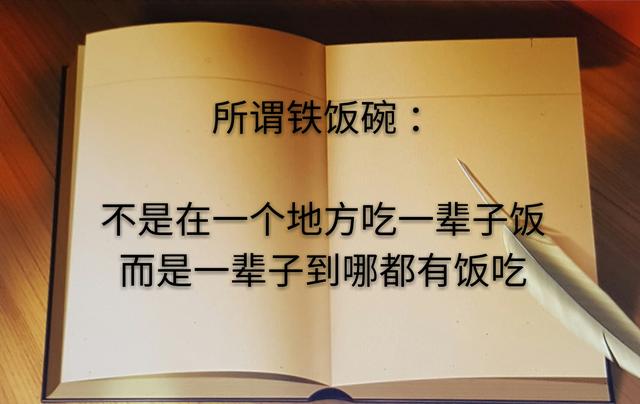 所谓铁饭碗：
不是在一个地方吃一辈子饭
而是一辈子到哪都有饭吃